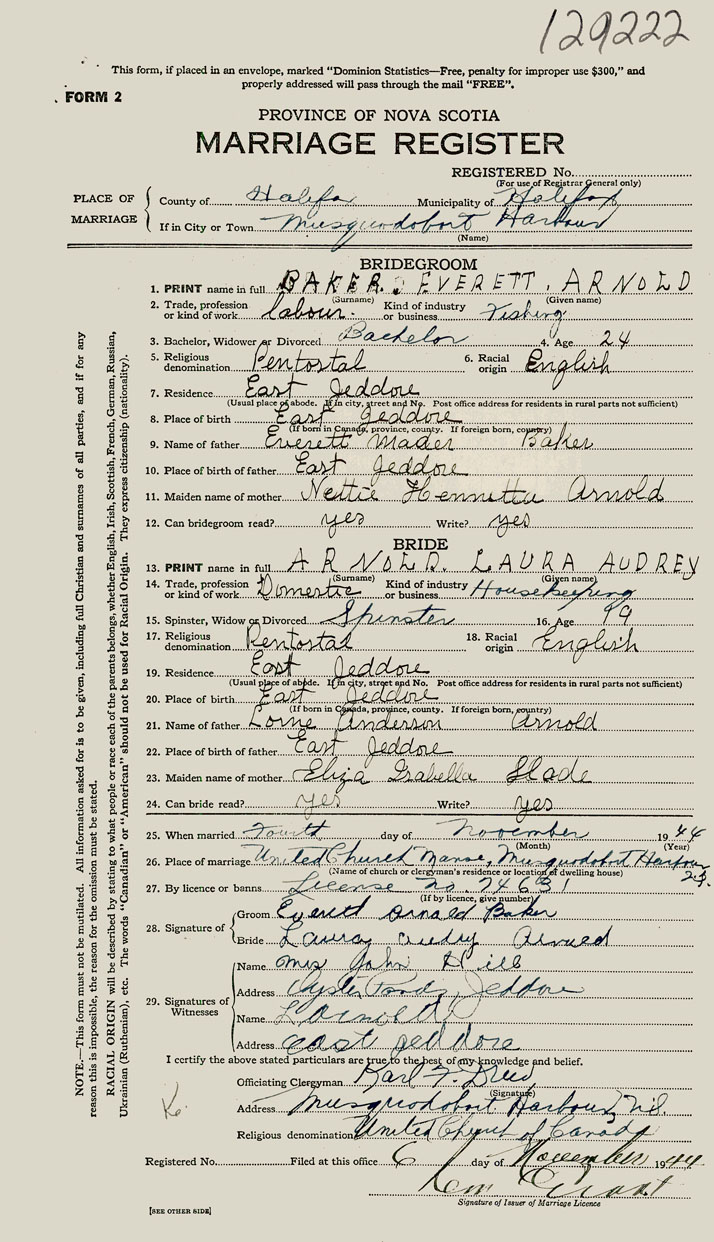 129222
This form, if placed in an envelope, marked "Dominion Statistics—Free, penalty for improper use $300," and
properly addressed will pass through the mail "FREE".
FORM 2
PROVINCE OF NOVA SCOTIA
MARRIAGE REGISTER
REGISTERED No.
(For use of Registrar General only)
PLACE OF MARRIAGE
County of Halifax Municipality of Halifax
If in City or Town Musquodoboit Harbour
(Name)
BRIDEGROOM
1. PRINT name in full BAKER. EVERETT. ARNOLD
(Surname) (Given name)
2. Trade, profession or kind of work labour. Kind of industry or business Fishing
3. Bachelor, Widower or Divorced Bachelor 4. Age 24
5. Religious denomination Pentostal 6. Racial origin English
7. Residence East Jeddore
(Usual place of abode. If in city, street and No. Post office address for residents in rural parts not sufficient)
8. Place of birth East Jeddore
(If born in Canada, province, county. If foreign born, country)
9. Name of father Everett Mader Baker
10. Place of birth of father East Jeddore
11. Maiden name of mother Nettie Hennetta Arnold
12. Can bridegroom read? yes Write? yes
BRIDE
13. PRINT name in full ARNOLD. LAURA AUDREY
(Surname) (Given name)
14. Trade, profession or kind of work Domestic Kind of industry or business Housekeeping
15. Spinster, Widow or Divorced Spinster 16. Age 19
17. Religious denomination Pentostal 18. Racial origin English
19. Residence East Jeddore
(Usual place of abode. If in city, street and No. Post office address for residents in rural parts not sufficient)
20. Place of birth East Jeddore
(If born in Canada, province, county. If foreign born, country)
21. Name of father Lorne Anderson Arnold
22. Place of birth of father East Jeddore
23. Maiden name of mother Eliza Isabella Slade
24. Can bride read? yes Write? yes
25. When married Fourth day of November 1944
(Month) (Year)
26. Place of marriage United Church Manse, Musquodoboit Harbour
(Name of church or clergyman's residence or location of dwelling house)
27. By licence or banns License no. 24631
(If by licence, give number)
28. Signature of
Groom Everett Arnold Baker
Bride Laura Audry
29. Signatures of Witnesses
Name Mrs John Hill
Address Oyster Ponds, Jeddore
Name L Arnold
Address east jeddore
I certify the above stated particulars are true to the best of my knowledge and belief.
Officiating Clergyman Karl F.
(Signature)
Address Musquodoboit Harbour, N.S.
Religious denomination United Church of Canada
Registered No. Filed at this office 6 day of November 1944
Signature of Issuer of Marriage Licence
[SEE OTHER SIDE]
NOTE.—This form must not be mutilated. All information asked for is to be given, including full Christian and surnames of all parties, and if for any
reason this is impossible, the reason for the omission must be stated.
RACIAL ORIGIN will be described by stating to what people or race each of the parents belongs, whether English, Irish, Scottish, French, German, Russian,
Ukrainian (Ruthenian), etc. The words "Canadian" or "American" should not be used for Racial Origin. They express citizenship (nationality).